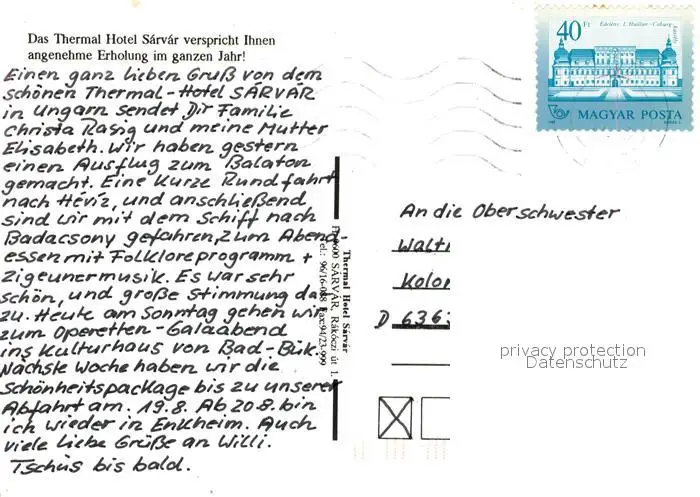 Das Thermal Hotel Sárvár verspricht Ihnen
angenehme Erholung im ganzen Jahr!
Einen ganz lieben Gruß von dem
schönen Thermal-Hotel SÁRVÁR
in Ungarn sendet Dir Familie
Christa Rasig und meine Mutter
Elisabeth. Wir haben gestern
einen Ausflug zum Balaton
gemacht. Eine Kurze Rundfahrt
nach Héviz, und anschließend
sind wir mit dem Schiff nach
Badacsony gefahren, zum Abend-
essen mit Folkloreprogramm +
Zigeunermusik. Es war sehr
schön, und große Stimmung da-
zu. Heute am Sonntag gehen wir
zum Operetten-Galaabend
ins Kulturhaus von Bad-Bük.
Nächste Woche haben wir die
Schönheitspackage bis zu unserer
Abfahrt am. 19.8. Ab 20.8. bin
ich wieder in Enkheim. Auch
viele liebe Grüße an Willi.
Tschüs bis bald.
Thermal Hotel Sárvár
9600 SÁRVÁR, Rákóczi út 1.
Tel.: 96/16-088 Fax:94/23-999
40 Ft
Edelény: L'Huillier-Coburg-
MAGYAR POSTA
An die Oberschwester
Walt
Kolon
D 6363
privacy protection
Datenschutz